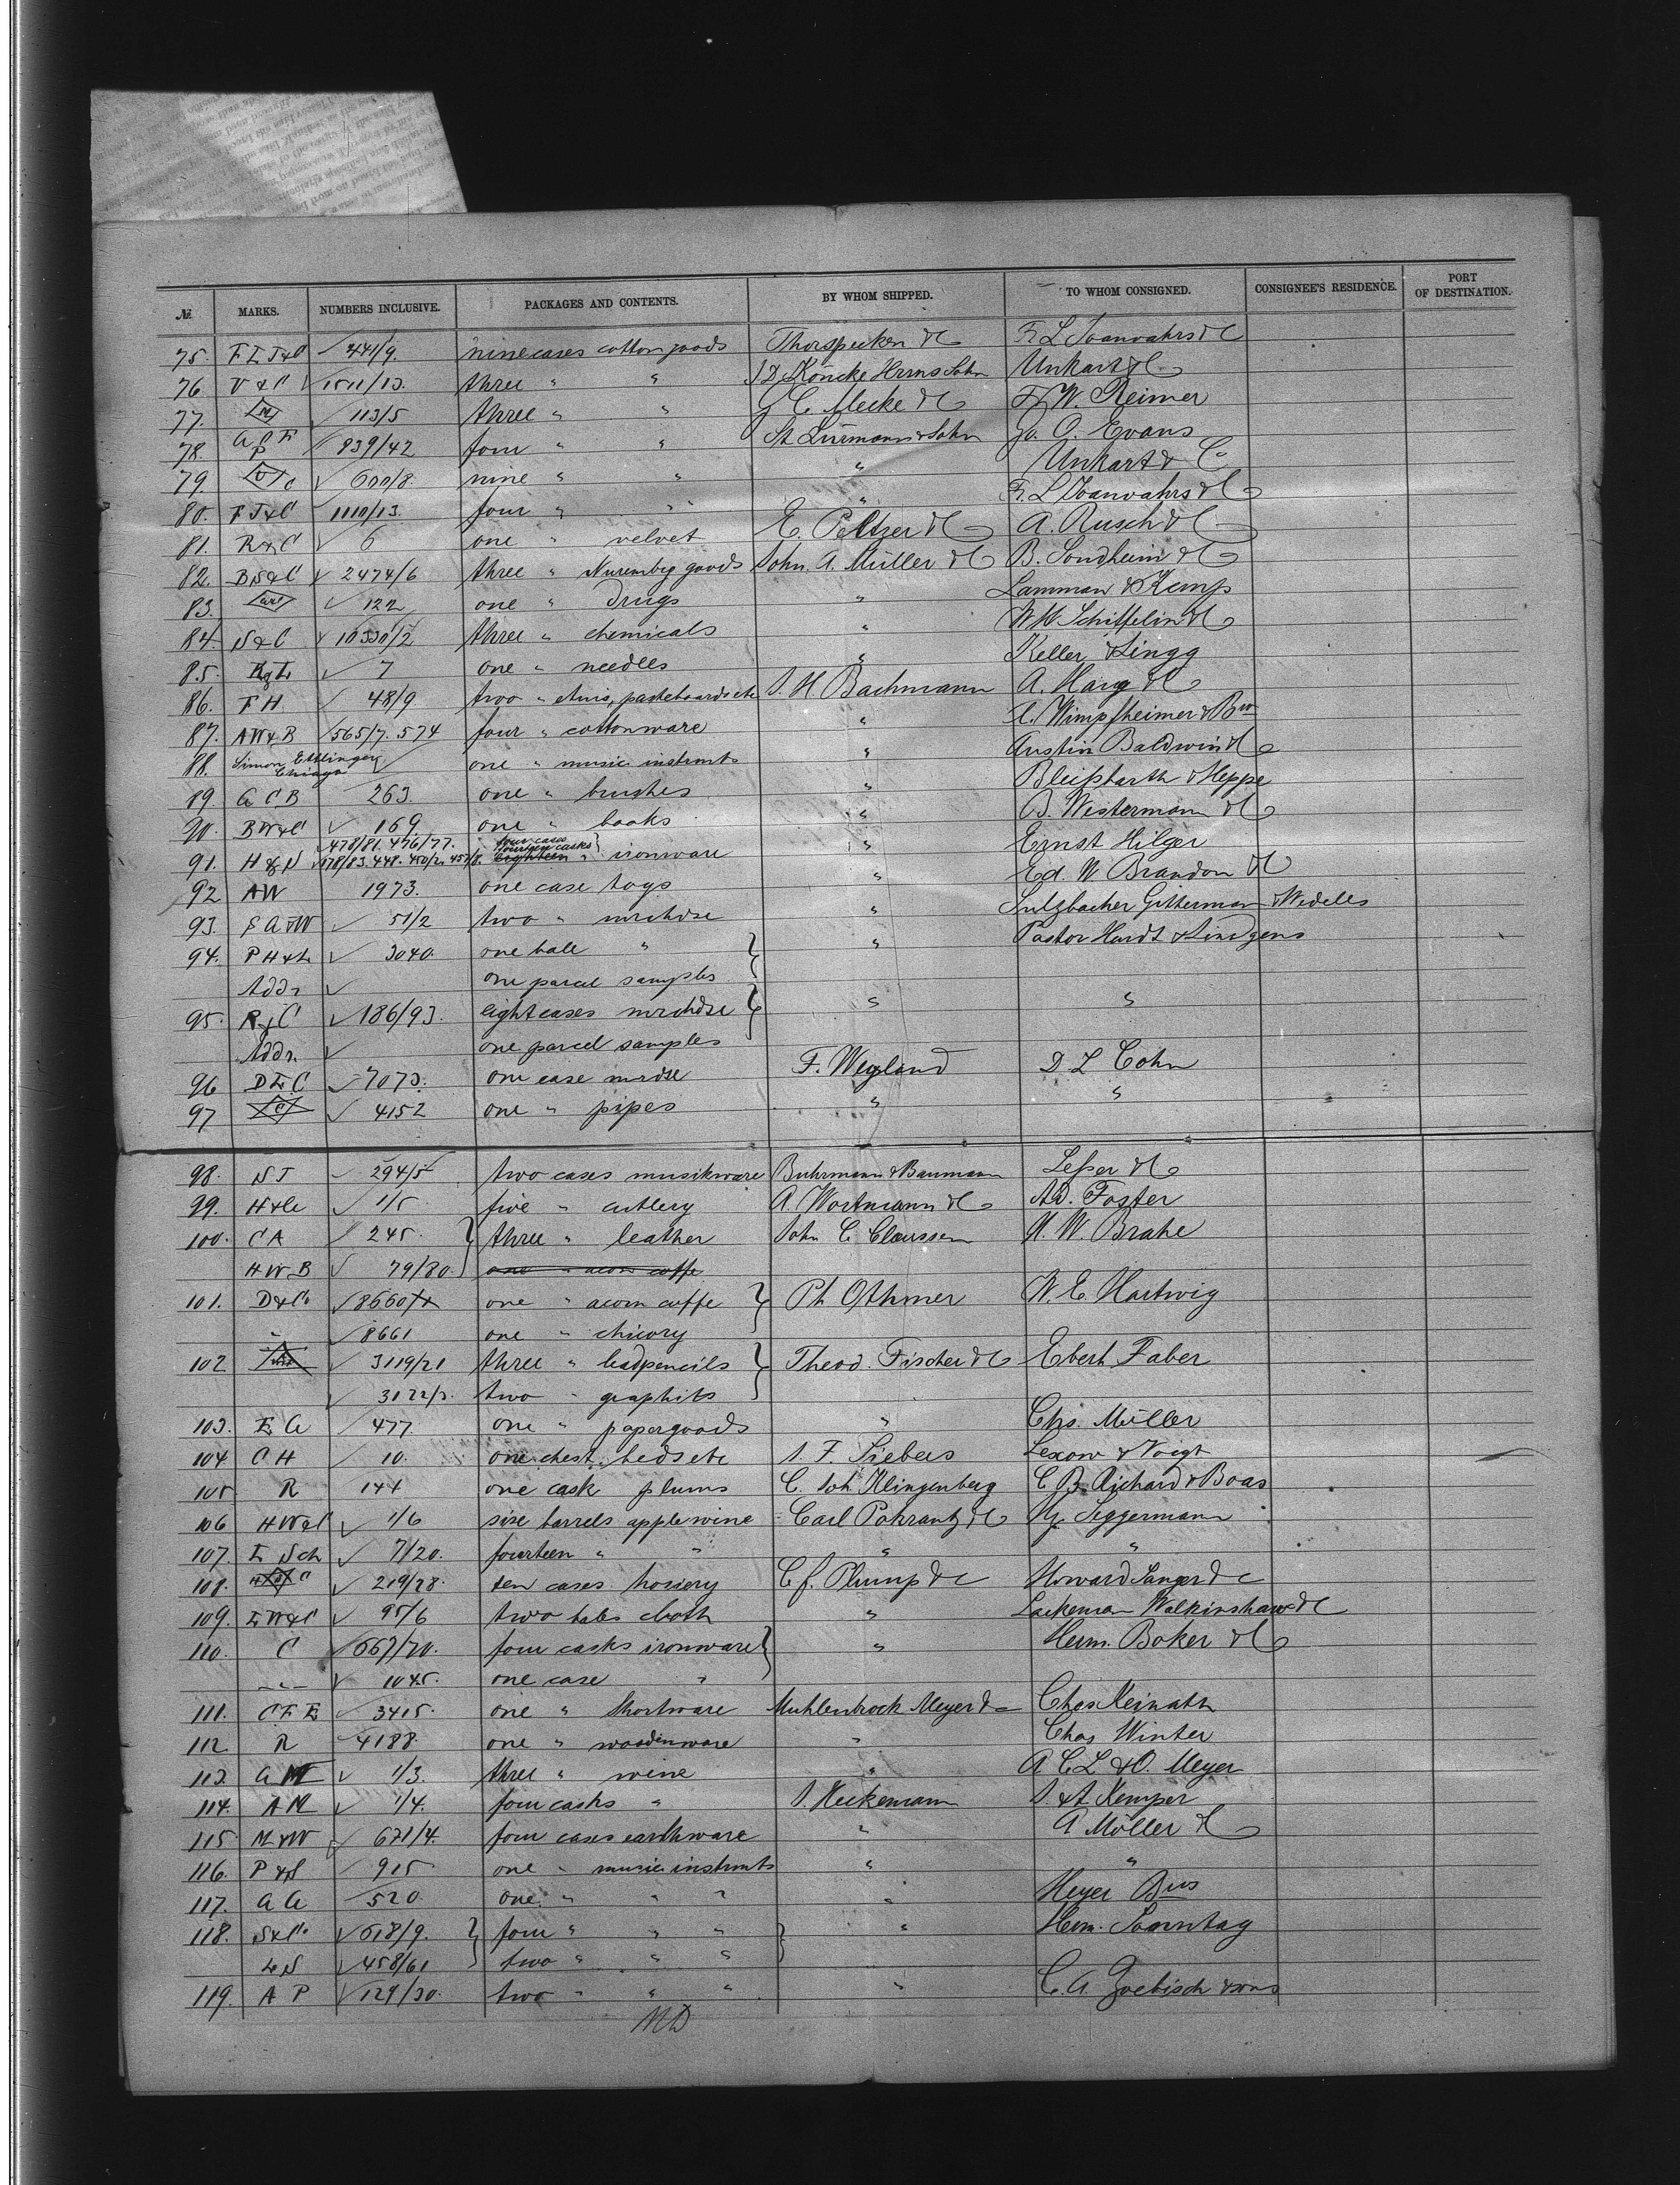 № MARKS. NUMBERS INCLUSIVE. PACKAGES AND CONTENTS. BY WHOM SHIPPED. TO WHOM CONSIGNED. CONSIGNEE'S RESIDENCE. PORT OF DESTINATION.
75. 441/9. nine cases cotton goods Thorspecken & C
76 V & C 1511/13. three " " Unkart & C
77. 113/5 three " " G C Mecke & C W. Reimer
78. 939/42 four " " St Lürmann & Sohn Evans
79. 600/8. nine " " " Unkart & C
80. F J & C 1110/13. four " " "
81. R & C 6 one " velvet E. Peltzer & C A. Rusch & C
82. B S & C 2474/6 three " Nuremberg goods John. A. Müller & C B. Sondheim & C
83. 122 one " drugs " Lamman & Kemp
84. S & C 10330/2 three " chemicals " W H Schiffelin & C
85. 7 one " needles " Keller & Lingg
86. F H. 48/9 two " etuis, pasteboards etc J. H. Bachmann A. Haug & C
87. A W & B 565/7. 574 four " cottonware " Wimpfheimer & Bro
88. Simon Ettlinger Chicago one " music instrmts " Austin Baldwin & C
89. G C B 263. one " brushes " & Heppe
90. B W & C 169. one " books " B. Westermann & C
91. H & S 478/81. 476/77. four cases fourteen casks eighteen " ironware " Ernst Hilger
92 A W 1973. one case toys " Ed. W Brandon & C
93. S G & W 51/2 two " mrchdse " Sulzbacher Gitterman & Wedeles
94. P H & L 3040. one bale " " Pastor Hardt & Lindgens
Addr one parcel samples
95. R & C 186/93. eight cases mrchdse " "
Addr. one parcel samples
96 D L C 7073. one case mrdse F. Weyland D. L Cohn
97 4152 one " pipes " "
98. 294/5 two cases musikware Buhrmann & Baumann Lesser & C
99. 1/5 five " cutlery A. Wortmann & C Ad. Foster
100. C A 245. three " leather John C. Claussen H. W. Brahe
H W B 79/80. one " acorn coffe
101. D & Co 8660 one " acorn coffe Ph Othmer W. E. Hartwig
" 8661 one " chicory
102 3119/21 three " leadpencils Theod. Fischer & C Eberh Faber
3122/3. two " graphits
103. E G 477. one " papergoods " Chs. Müller
104 C H 10. one chest beds etc J. F. Siebers Lexow & Voigt
105 R 144 one cask plums C. Joh. Klingenberg C B. Richard & Boas
106 H W & C 1/6 sixe barrels applewine Carl Pokrantz & C Hy. Seggermann
107. E Sch 7/20. fourteen " " " "
108. 219/28. ten cases hosiery C f. Plump & C Howard Sanger & C
109. L W & C 95/6 two bales cloth " Lackeman Walkinshaw & C
110. C 567/70. four casks ironware " Herm. Boker & C
" 1045. one case "
111. C F E 3415. one " Shortware Muhlenbrock Meyer & C Chas Reinath
112. R 4188. one " woodenware " Chas Winter
113. 1/3. three " wine " A. C L & O. Meyer
114. A K 1/4. four casks " J. Heckemann J. & A Kemper
115 M & W 671/4. four cases earthware " A Möller & C
116. P & S 915 one " music instrmts " "
117. G G 520. one " " " " Meyer Bros
118. S & Co 618/9. four " " " " Herm. Sonntag
L S 458/61 two " " "
119. A P 129/30. two " " " " C. A. Goebisch & sons